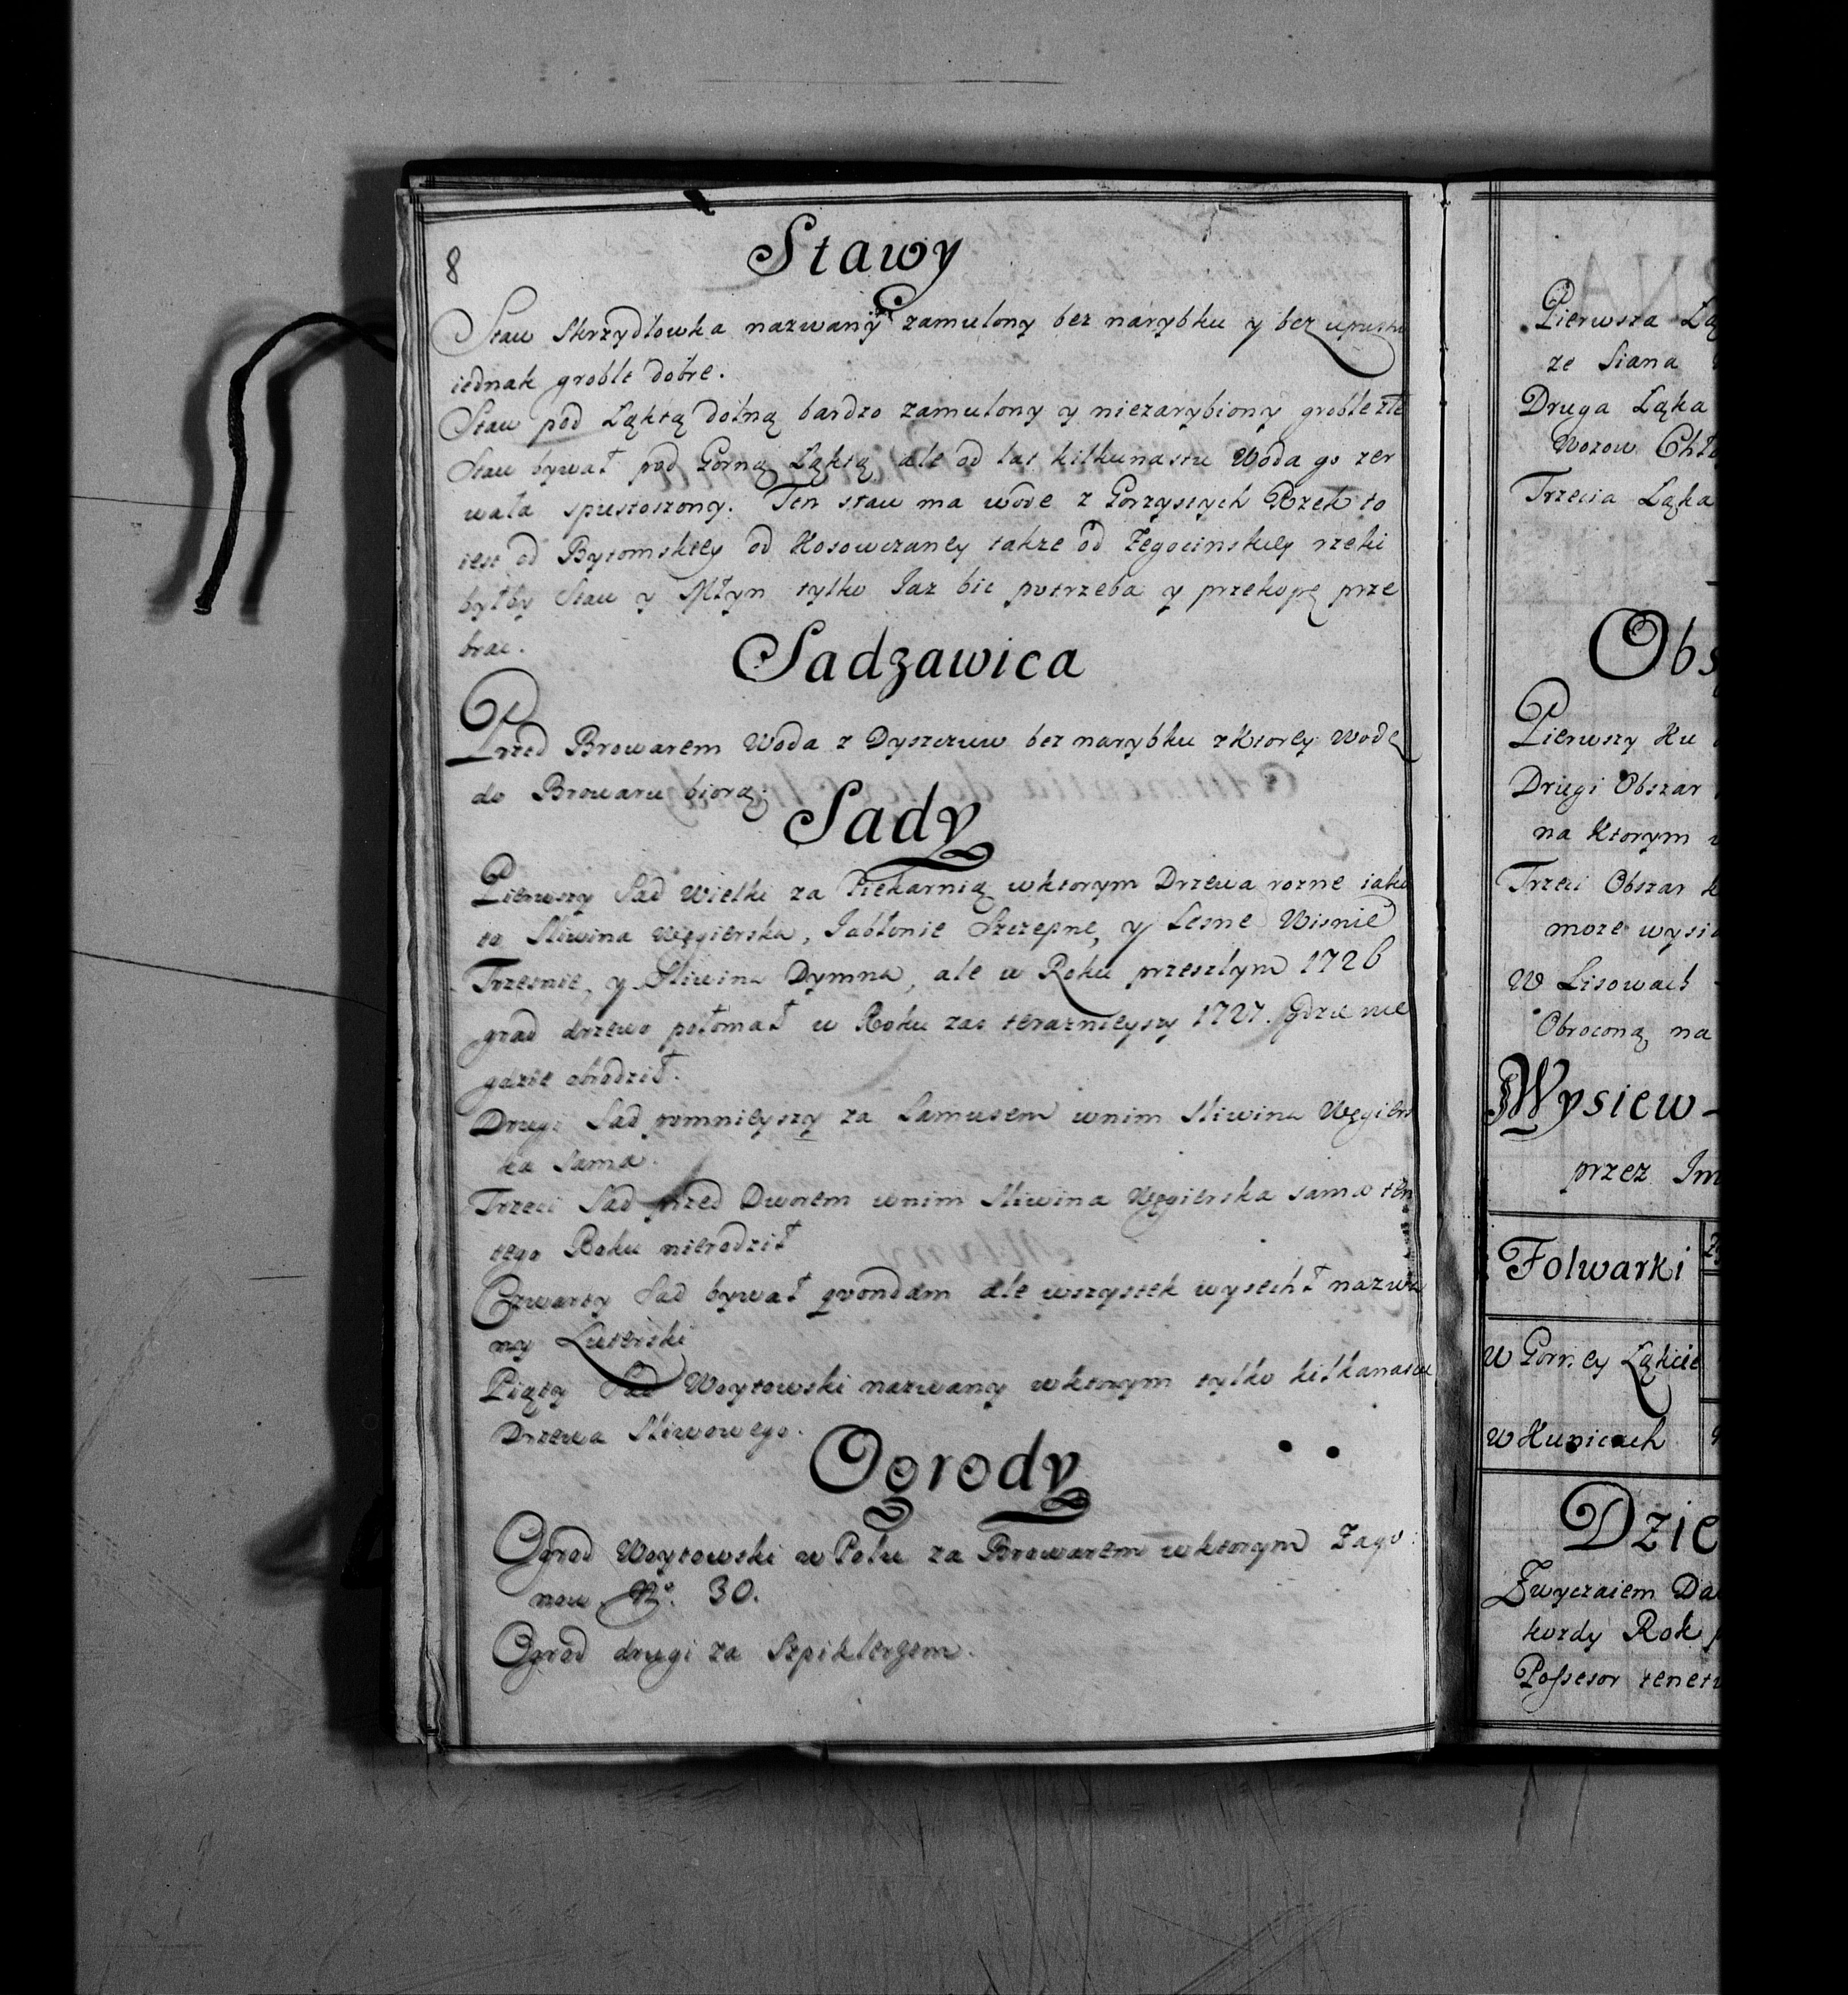 8
Stawy
Staw Skrzydłowka nazwany zamulony bez narybku y bez upustu
iednak groble dobre.
Staw pod Łąktą dolną bardzo zamulony y niezarybiony groble złe
Staw bywał pod Gorną Łąktą ale od lat kilkunastu Woda go zer
wała spustoszony. Ten staw ma wode z Gorzystych Rzek to
iest od Bytomskiey od Kosowczaney takze od Zegocinskiey rzeki
byłby Staw y Młyn tylko Jaz bic potrzeba y przekopę prze
brac.
Sadzawica
Przed Browarem Woda z Dyszczuw bez narybku z ktorey Wodę
do Browaru biorą.
Sady
Pierwszy Sad Wielki za Piekarnią wktorym Drzewa rozne iako
to Sliwina Węgierska, Jabłonie Szczepne, y Lesne Wisnie
Trzesnie, y Sliwina Dymna, ale w Roku przeszlym 1726
grad drzewo połomał w Roku zas teraznieyszy 1727. gdzie nie
gdzie obrodził.
Drugi Sad pomnieyszy za Lamusem wnim Sliwina Węgiers
ka Sama.
Trzeci Sad przed Dworem wnim Sliwina Węgierska sama ten
tego Roku nierodził
Czwarty Sad bywał quondam ale wszystek wysechł nazwa
ny Luterski
Piąty Sad Woytowski nazwany wktorym tylko kilkanascie
Drzewa Sliwowego.
Ogrody
Ogrod Woytowski w Polu za Browarem wktorym Zago
now No. 30.
Ogrod drugi za Szpiklerzem.
Pierwsza
ze Siana
Druga Łąka
Wozow
Trzecia Łąka
Pierwszy Ku
Drugi Obszar
na Ktorym
Trzeci Obszar
moze
W Lisowach
Obroconą na
Wysiew
przez
Folwarki
W Gorney Łąkcie
W Kunicach
Zwyczaiem
kozdy Rok
Possesor